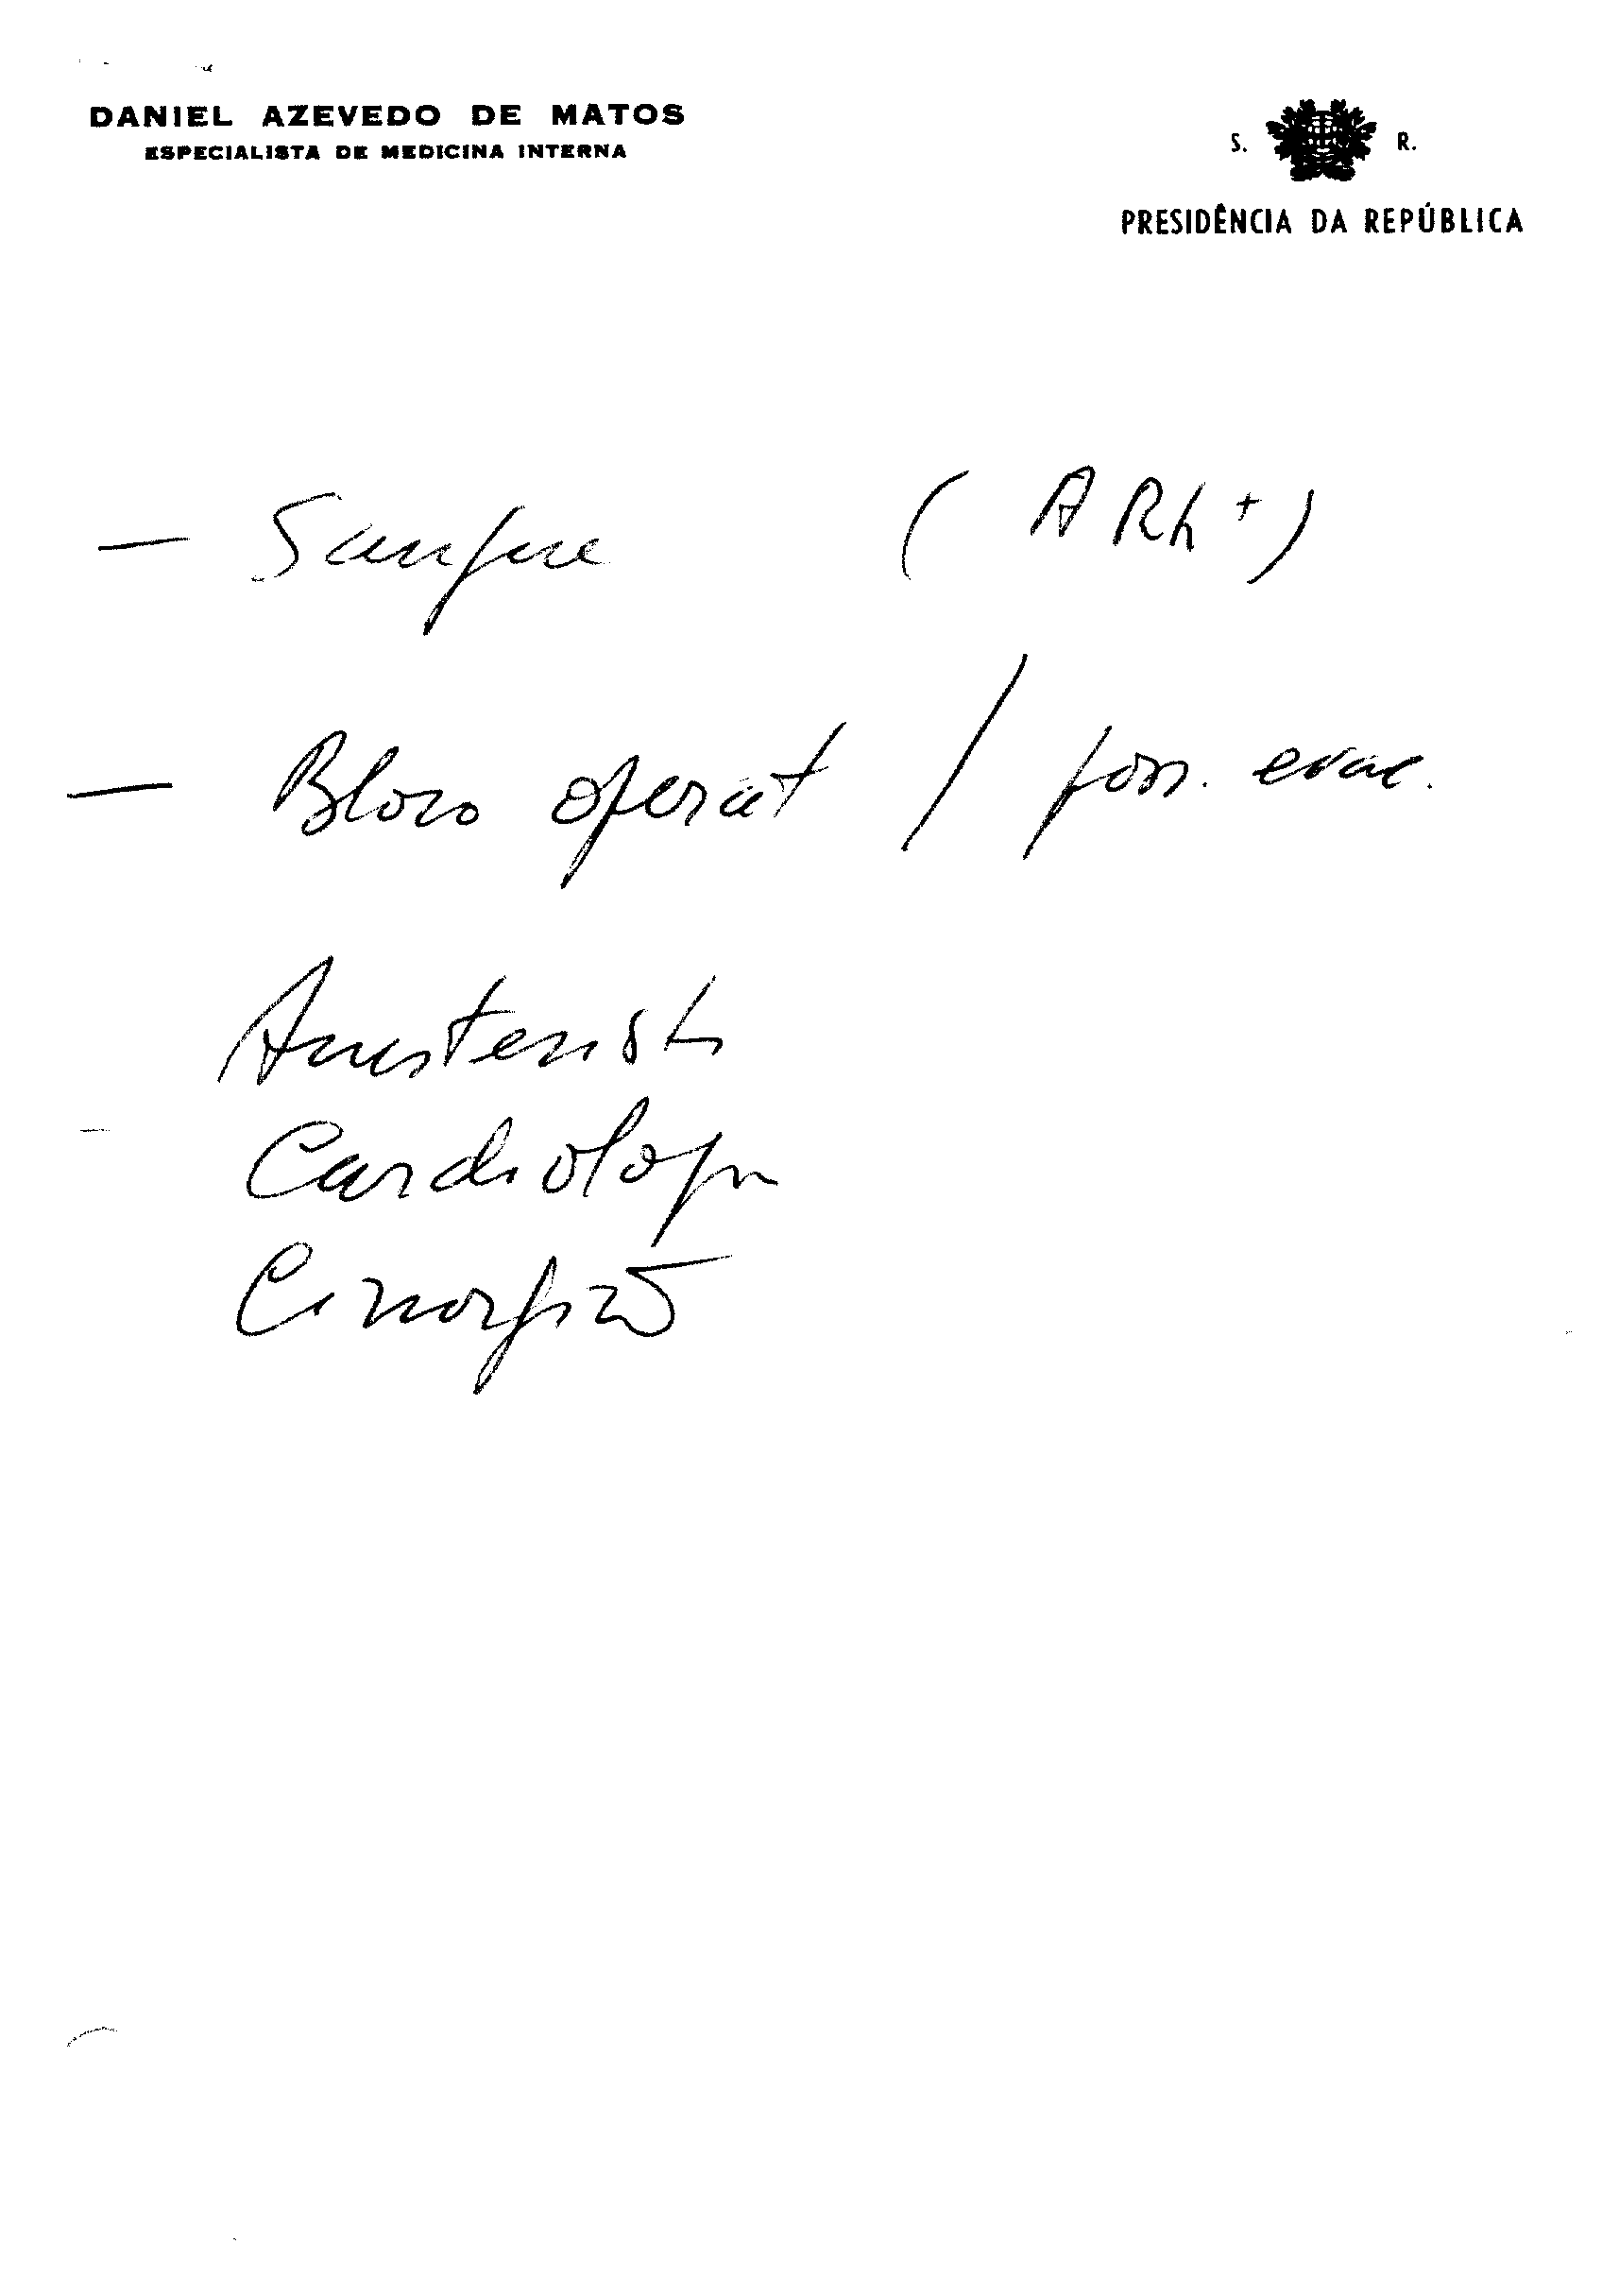 DANIEL AZEVEDO DE MATOS
ESPECIALISTA DE MEDICINA INTERNA
S. R.
PRESIDÊNCIA DA REPÚBLICA
— Sangue (A Rh+)
— Bloco operat / poss. evac.
Anestesista
- Cardiologia
Cirurgião